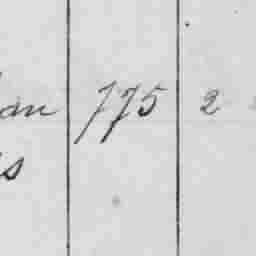 an 775 2
s